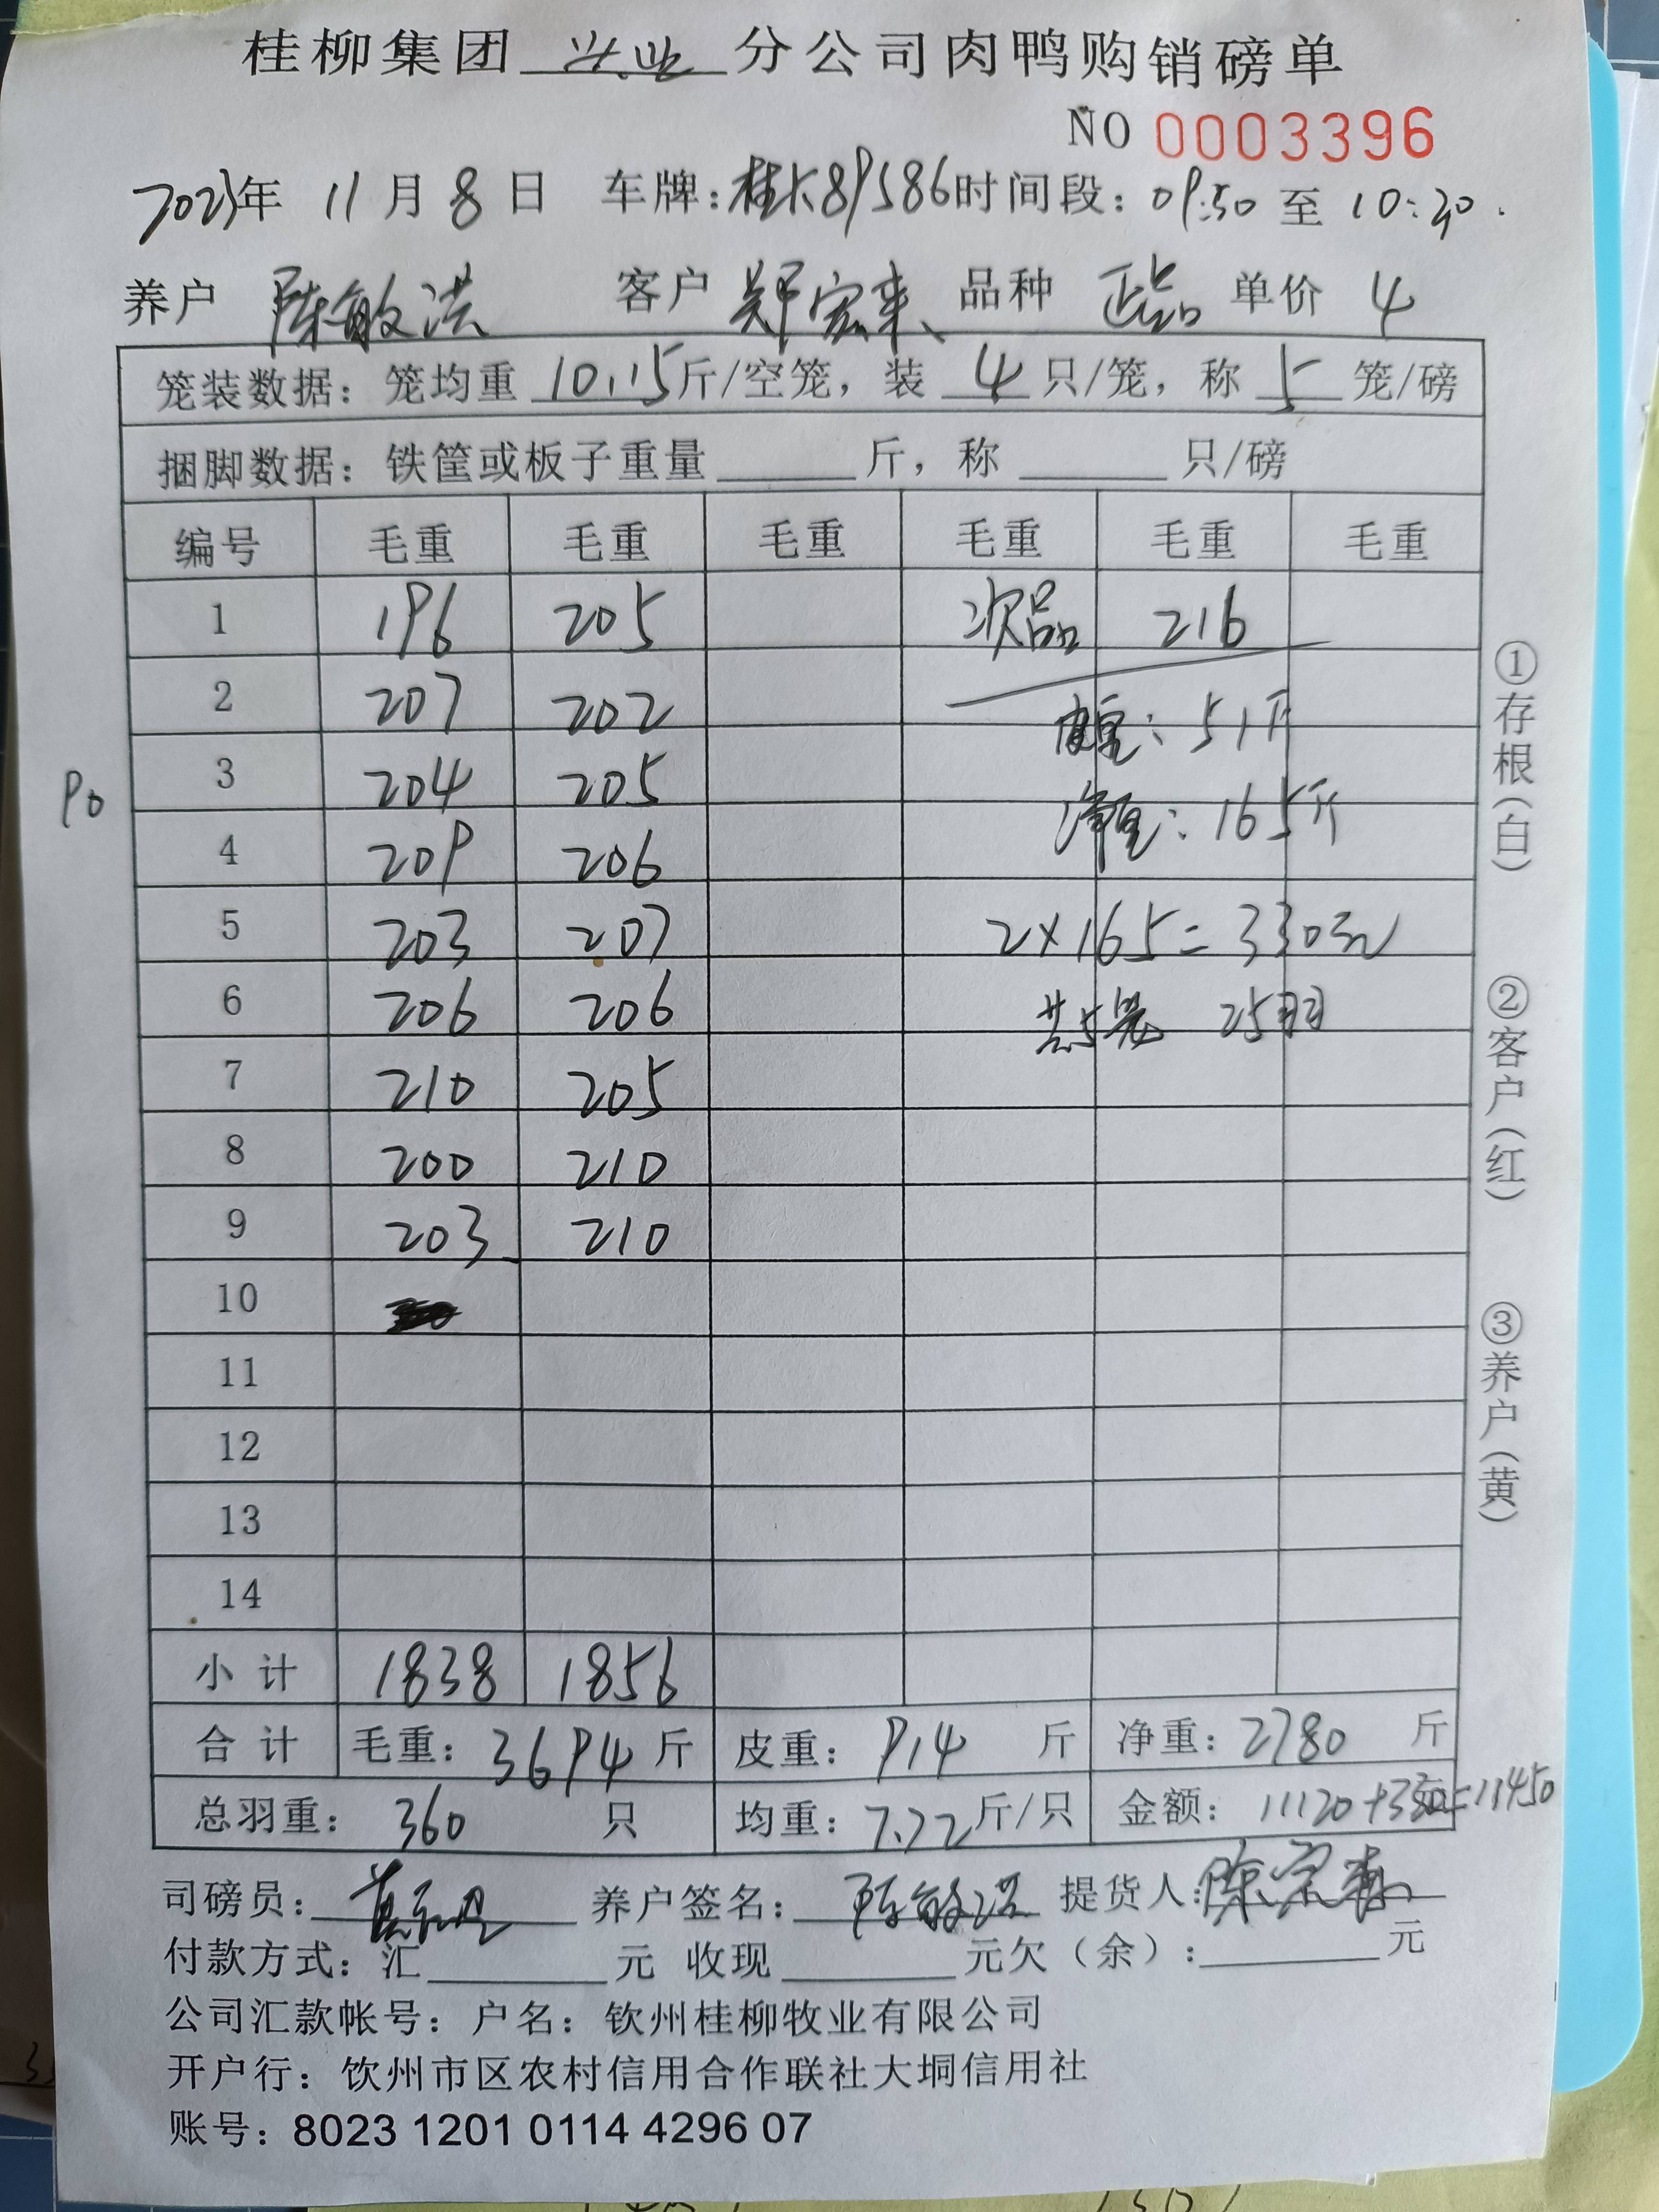 桂柳集团 兴业 分公司肉鸭购销磅单
NO 0003396
2023年 11月8日 车牌:桂K89586 时间段:09:50 至 10:20.
养户 陈敏洪 客户 郑宏来 品种 正品 单价 4
笼装数据:笼均重 10.15 斤/空笼,装 4 只/笼,称 5 笼/磅
捆脚数据:铁筐或板子重量 斤,称 只/磅
编号 毛重 毛重 毛重 毛重 毛重 毛重
1 196 205 次品 216
2 207 202 皮重:51斤
3 204 205 净重:165斤
90
4 209 206
5 203 207 2×165=330元
6 206 206 共5笼 25羽
7 210 205
8 200 210
9 203 210
10
11
12
13
14
小计 1838 1856
合计 毛重:3694斤 皮重:914斤 净重:2780斤
总羽重:360只 均重:7.72斤/只 金额:11120+330=11450
司磅员: 养户签名:陈敏洪 提货人:陈宗
付款方式:汇 元 收现 元欠(余): 元
公司汇款帐号:户名:钦州桂柳牧业有限公司
开户行:饮州市区农村信用合作联社大垌信用社
账号:8023 1201 0114 4296 07
①存根(白)
②客户(红)
③养户(黄)